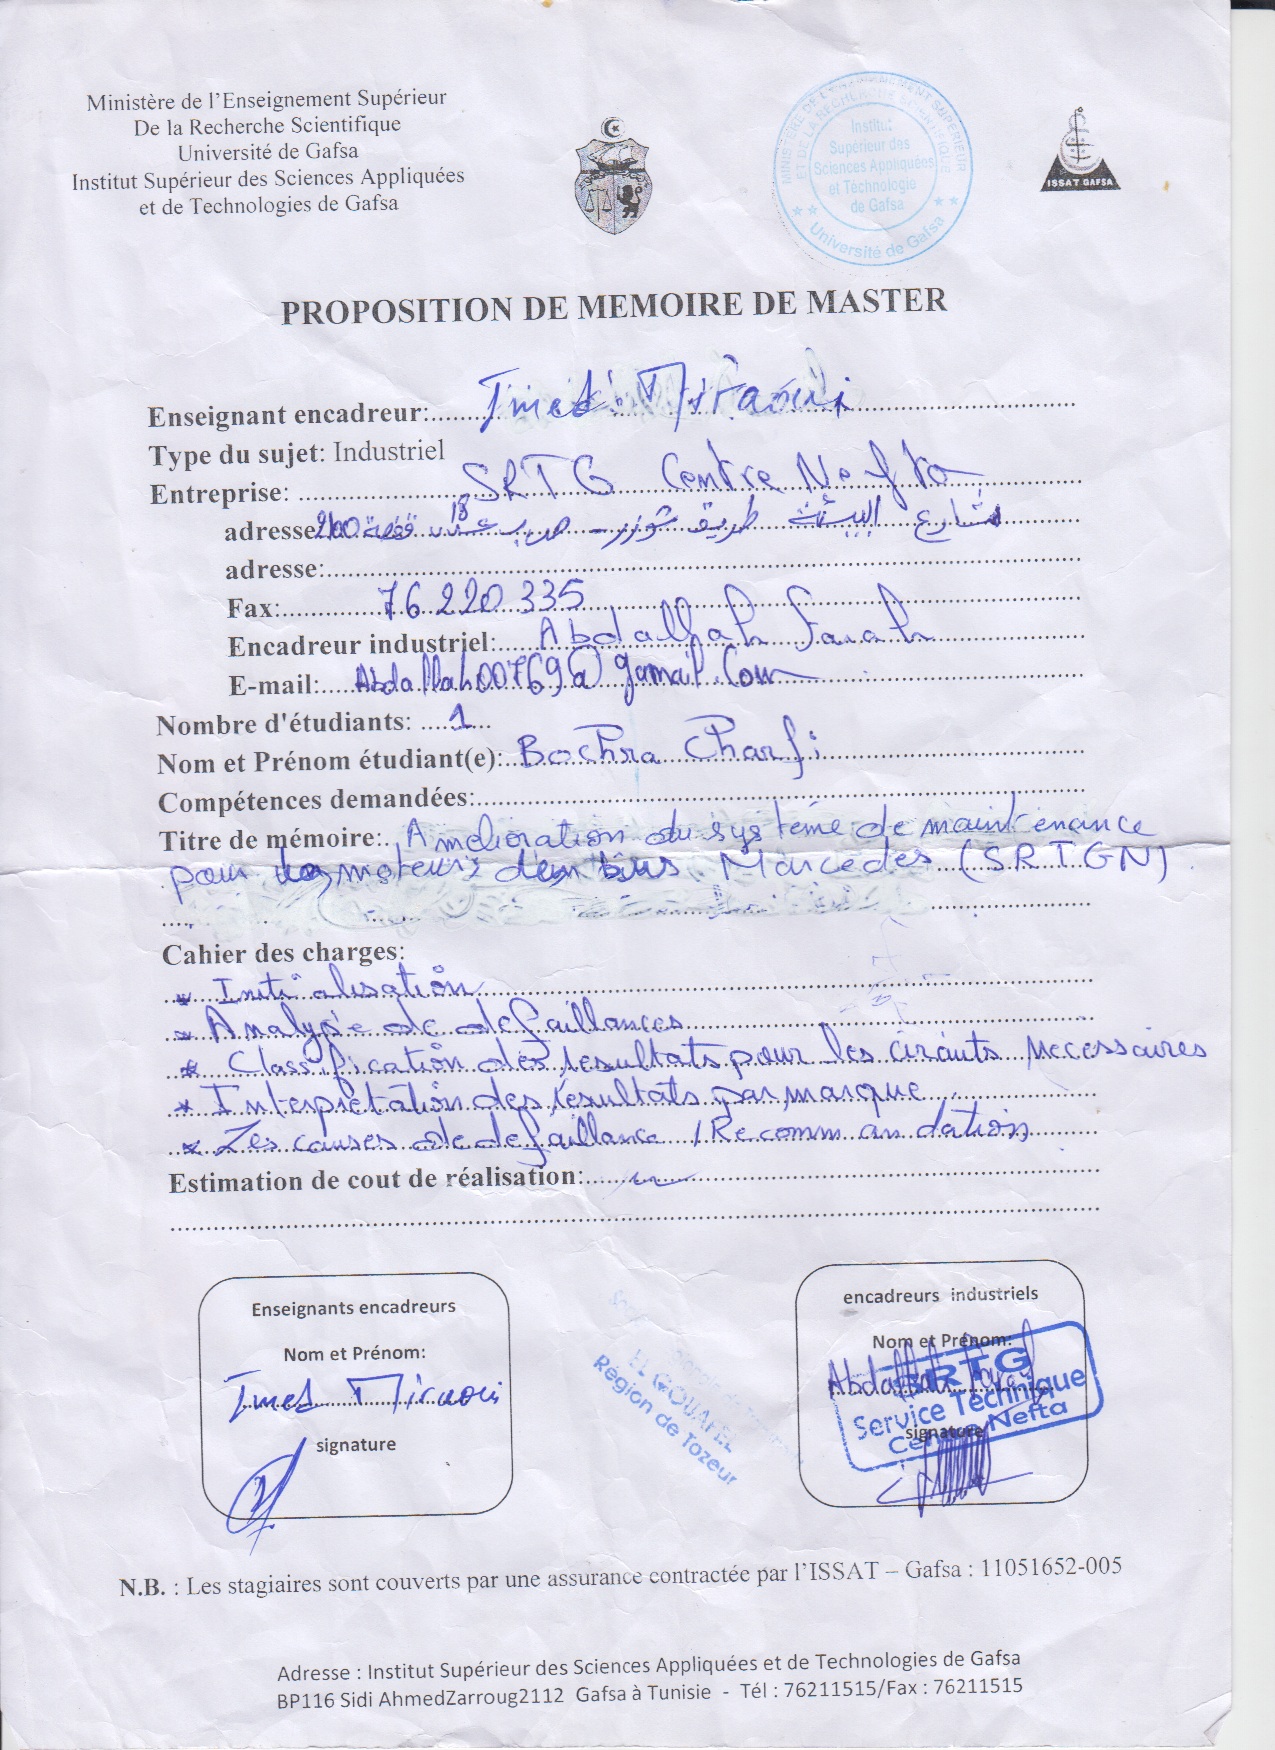 Ministère de l'Enseignement Supérieur
De la Recherche Scientifique
Université de Gafsa
Institut Supérieur des Sciences Appliquées
et de Technologies de Gafsa
MINISTÈRE DE L'ENSEIGNEMENT SUPÉRIEUR
ET DE LA RECHERCHE SCIENTIFIQUE
Institut
Supérieur des
Sciences Appliquées
et Technologie
de Gafsa
Université de Gafsa
ISSAT GAFSA
PROPOSITION DE MEMOIRE DE MASTER
Enseignant encadreur: Imed Miraoui
Type du sujet: Industriel
Entreprise: SRTG Centre Nefta
adresse: شارع البيئة طريق توزر ص ب عدد 18 قفصة 2100
adresse:
Fax: 76 220 335
Encadreur industriel: Abdallah Farah
E-mail: Abdallah00769@gamail.Com
Nombre d'étudiants: 1
Nom et Prénom étudiant(e): Bochra Charfi
Compétences demandées:
Titre de mémoire: Amelioration du système de maintenance
pour moteurs bus Marcedes (S.R.T.GN)
Cahier des charges:
* Initialisation
* Analyse de defaillances
* Classification des resultats pour les circuits necessaires
* Interprétation des résultats par marque
* Les causes de defaillance / Recommandation
Estimation de cout de réalisation:
Enseignants encadreurs
Nom et Prénom:
Imed Miraoui
signature
EL GOUAFEL
Région de Tozeur
encadreurs industriels
Nom et Prénom:
Abdallah Farah
SRTG
Service Technique
Centre Nefta
signature
N.B. : Les stagiaires sont couverts par une assurance contractée par l'ISSAT – Gafsa : 11051652-005
Adresse : Institut Supérieur des Sciences Appliquées et de Technologies de Gafsa
BP116 Sidi AhmedZarroug2112 Gafsa à Tunisie - Tél : 76211515/Fax : 76211515